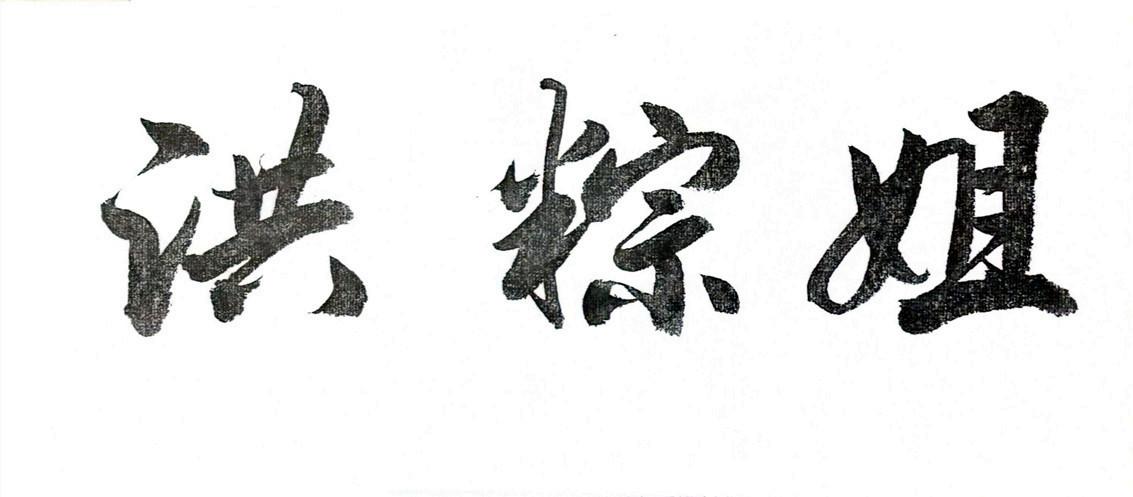 洪粽姐